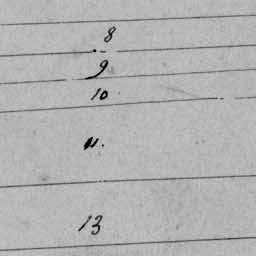 8
9
10
11.
13